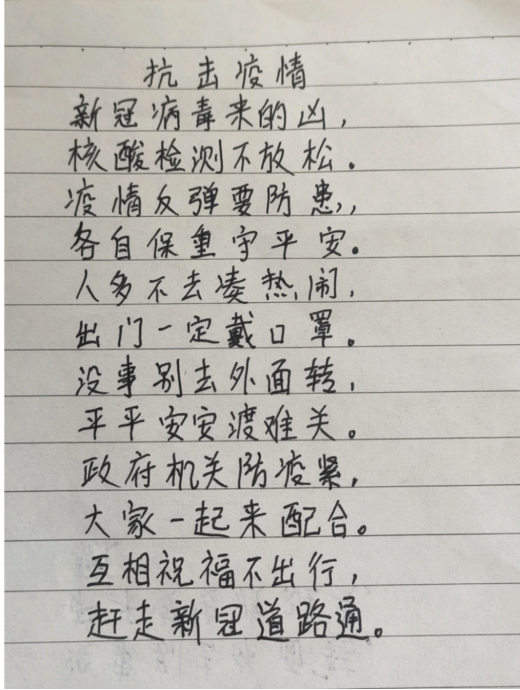 抗击疫情
新冠病毒来的凶,
核酸检测不放松.
疫情反弹要防患,,
各自保重守平安。
人多不去凑热闹,
出门一定戴口罩。
没事别去外面转,
平平安安渡难关。
政府机关防疫紧,
大家一起来配合。
互相祝福不出行,
赶走新冠道路通。